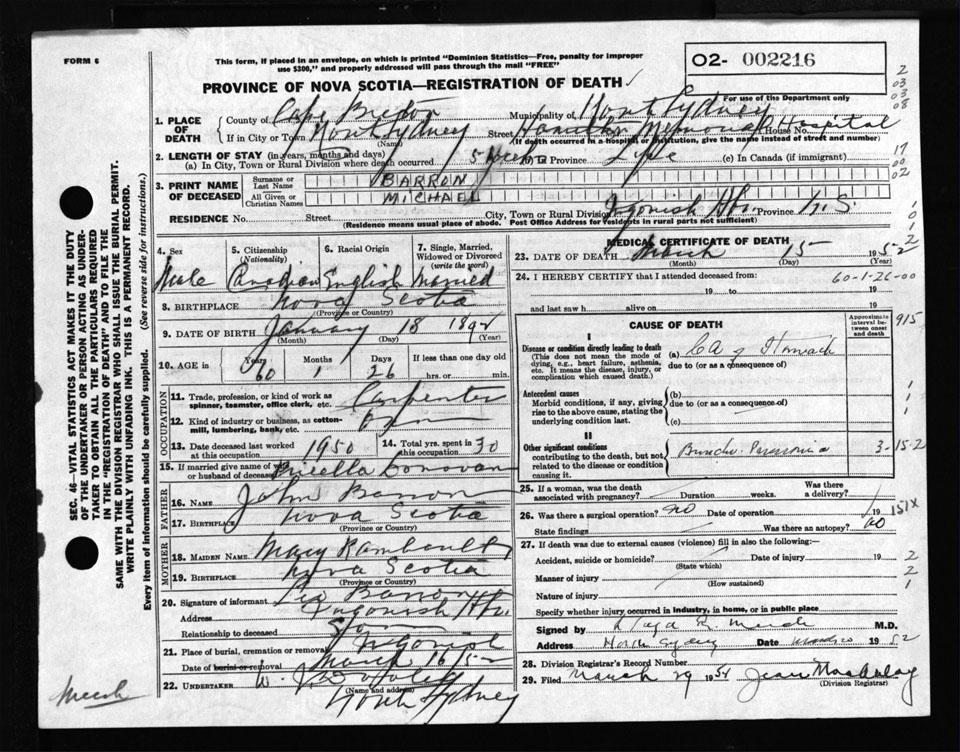 FORM 6
This form, if placed in an envelope, on which is printed "Dominion Statistics—Free, penalty for improper
use $300," and properly addressed will pass through the mail "FREE"
O2- 002216
PROVINCE OF NOVA SCOTIA—REGISTRATION OF DEATH
For use of the Department only
2
03
03
08
1. PLACE OF DEATH
County of Cape Breton
Municipality of North Sydney
If in City or Town North Sydney (Name) Street Hamilton Memorial Hospital House No.
(If death occurred in a hospital or institution, give the name instead of street and number)
2. LENGTH OF STAY (in years, months and days)
(a) In City, Town or Rural Division where death occurred 5 (b) In Province Life (c) In Canada (if immigrant)
17
00
02
3. PRINT NAME OF DECEASED
Surname or Last Name BARRON
All Given or Christian Names MICHAEL
RESIDENCE No. Street City, Town or Rural Division Ingonish Hbr. Province N.S.
(Residence means usual place of abode. Post Office Address for Residents in rural parts not sufficient)
4. Sex Male
5. Citizenship (Nationality) Canadian
6. Racial Origin English
7. Single, Married, Widowed or Divorced (write the word) Married
8. BIRTHPLACE Nova Scotia
(Province or Country)
9. DATE OF BIRTH January 18 1892
(Month) (Day) (Year)
10. AGE in Years 60 Months 1 Days 26 If less than one day old hrs. or min.
OCCUPATION
11. Trade, profession, or kind of work as spinner, teamster, office clerk, etc. Carpenter
12. Kind of industry or business, as cotton-mill, lumbering, bank, etc. Own
13. Date deceased last worked at this occupation 1950
14. Total yrs. spent in this occupation 30
15. If married give name of wife or husband of deceased Donovan
FATHER
16. NAME John Barron
17. BIRTHPLACE Nova Scotia
(Province or Country)
MOTHER
18. MAIDEN NAME Mary
19. BIRTHPLACE Nova Scotia
(Province or Country)
20. Signature of informant Leo Barron
Address Ingonish Hbr.
Relationship to deceased Son
21. Place of burial, cremation or removal Ingonish
Date of burial or removal March 16/52
22. UNDERTAKER W. J.
(Name and address) North Sydney
MEDICAL CERTIFICATE OF DEATH
23. DATE OF DEATH March 15 1952
(Month) (Day) (Year)
24. I HEREBY CERTIFY that I attended deceased from: 60-1-26-00
19 to 19
and last saw h alive on 19
CAUSE OF DEATH
Approximate interval between onset and death
915
I
Disease or condition directly leading to death
(This does not mean the mode of dying, e.g., heart failure, asthenia, etc. It means the disease, injury, or complication which caused death.)
(a) CA of Stomach
due to (or as a consequence of)
Antecedent causes
Morbid conditions, if any, giving rise to the above cause, stating the underlying condition last.
(b)
due to (or as a consequence of)
(c)
II
Other significant conditions
contributing to the death, but not related to the disease or condition causing it.
3-
15-2
25. If a woman, was the death associated with pregnancy? Duration weeks. Was there a delivery?
26. Was there a surgical operation? No Date of operation 19
151X
State findings Was there an autopsy? No
27. If death was due to external causes (violence) fill in also the following:—
Accident, suicide or homicide? (State which) Date of injury 19
Manner of injury (How sustained)
2
2
1
Nature of injury
Specify whether injury occurred in industry, in home, or in public place
Signed by M.D.
Address North Sydney Date 1952
28. Division Registrar's Record Number
29. Filed March 29 19 Jean
(Division Registrar)
SEC. 46—VITAL STATISTICS ACT MAKES IT THE DUTY
OF THE UNDERTAKER OR PERSON ACTING AS UNDER-
TAKER TO OBTAIN ALL THE PARTICULARS REQUIRED
IN THE "REGISTRATION OF DEATH" AND TO FILE THE
SAME WITH THE DIVISION REGISTRAR WHO SHALL ISSUE THE BURIAL PERMIT.
WRITE PLAINLY WITH UNFADING INK. THIS IS A PERMANENT RECORD.
Every item of information should be carefully supplied. (See reverse side for instructions.)